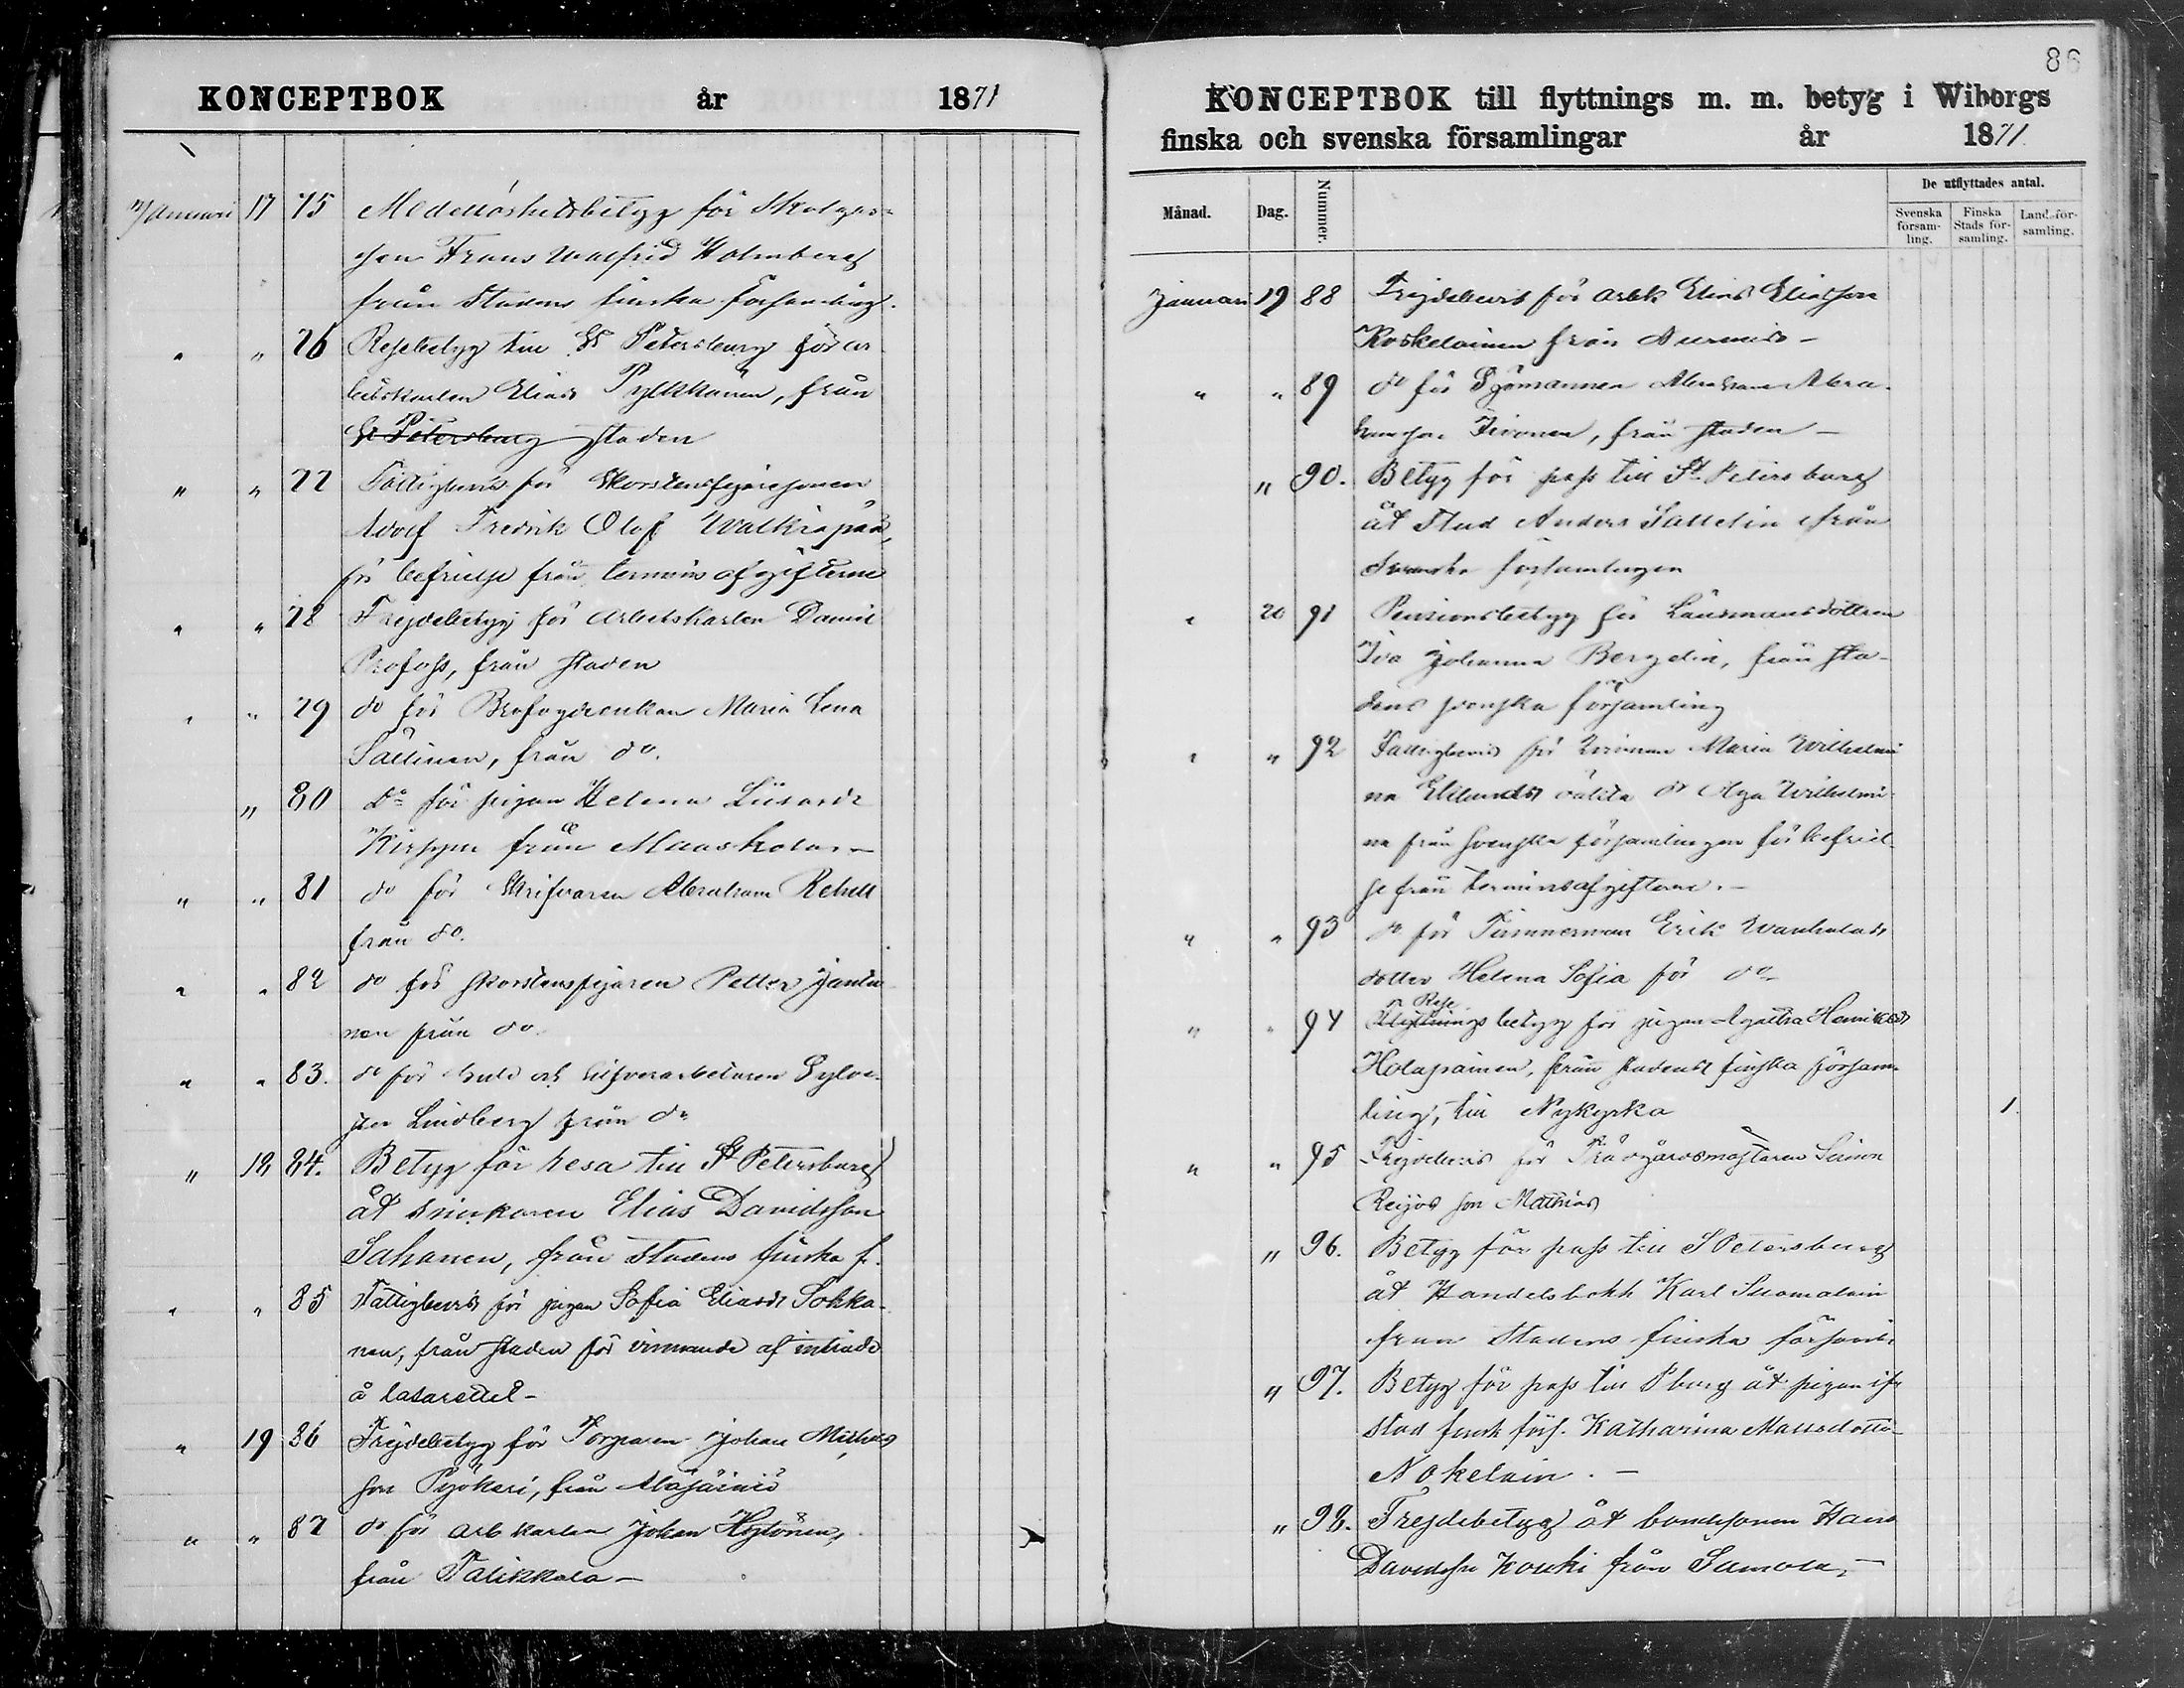 KONCEPTBOK år 1871
Januari 17 75 Medellöshetsbetyg för Skolgos-
sen Frans Walfrid Holmberg
från Stadens finska församling.
" " 76 Resebetyg till St Petersburg för ar-
betskarlen Elias Pylkkänen, från
St Petersburg staden
" " 77 Fattigbevis för Skorstensfejaresonen
Adolf Fredrik Olof Walkiapää,
för befrielse från termins afgifterne
" " 78 Frejdebetyg för Arbetskarlen Daniel
Profoss, från staden
" " 79 do för Brofogdeenkan Maria Lena
Sällinen, från do.
" 80 do för pigan Helena Liisardr
från Maaskola –
" " 81 do för Skrifvaren Abraham Rehell
från do.
" " 82 do för Skorstensfejaren Petter Jänti
nen från do
" " 83. do för Guld och Silfverarbetaren Sylve-
ster Lindberg från do
" 18 84. Betyg för resa till St Petersburg
åt snickaren Elias Davidsson
Sahanen, från Stadens finska f.
" " 85 Fattigbevis för pigan Sofia Eliasdr Sokka-
nen, från staden för vinnande af inträde
å lasarettet –
" 19 86 Frejdebetyg för Torparen Johan Mathias
son Pyökeri, från Alasäiniö
" " 87 do för arb karlen Johan Hytönen,
från Talikkala –
86
KONCEPTBOK till flyttnings m. m. betyg i Wiborgs
finska och svenska församlingar år 1871
Månad. Dag. Nummer. De utflyttades antal.
Svenska församling. Finska Stads församling. Landsförsamling.
Januari 19 88 Frejdebevis för arbk Elias Eliasson
Koskelainen från Nurmis –
" " 89 do för Sjömannen Abraham Abra-
hamson Iivonen, från staden –
" 90. Betyg för pass till St Petersburg
åt Stud Anders Sallelin från
Svenska församlingen
" 20 91 Pensionsbetyg för Länsmansdottren
Ida Johanna Bergelin, från sta-
dens svenska församling
" " 92 Fattigbevis för Maria Wilhelmi
na oäkta dr Olga Wilhelmi-
na från svenska församlingen för befriel-
se från terminsafgifterne. –
" " 93 do för Timmerman Erik Wanhalas
dotter Helena Sofia för do
" " 94 Rese Flyttnings betyg för pigan Agatha Henriksdr
Holapainen, från stadens finska försam-
ling, till Nykyrka 1
" " 95 Frejdebevis för Trädgårdsmästaren Simon
Reijos son Mathias
" 96. Betyg för pass till S Petersburg
åt Handelsbokh Karl Suomalain
från Stadens finska församl
" 97. Betyg för pass till Pburg åt pigan ifr
stad finsk förs. Katharina Mattsdotter
Nokelain. –
" 98. Frejdebetyg åt bondesonen Hans
Davidsson Kouki från Samola, –